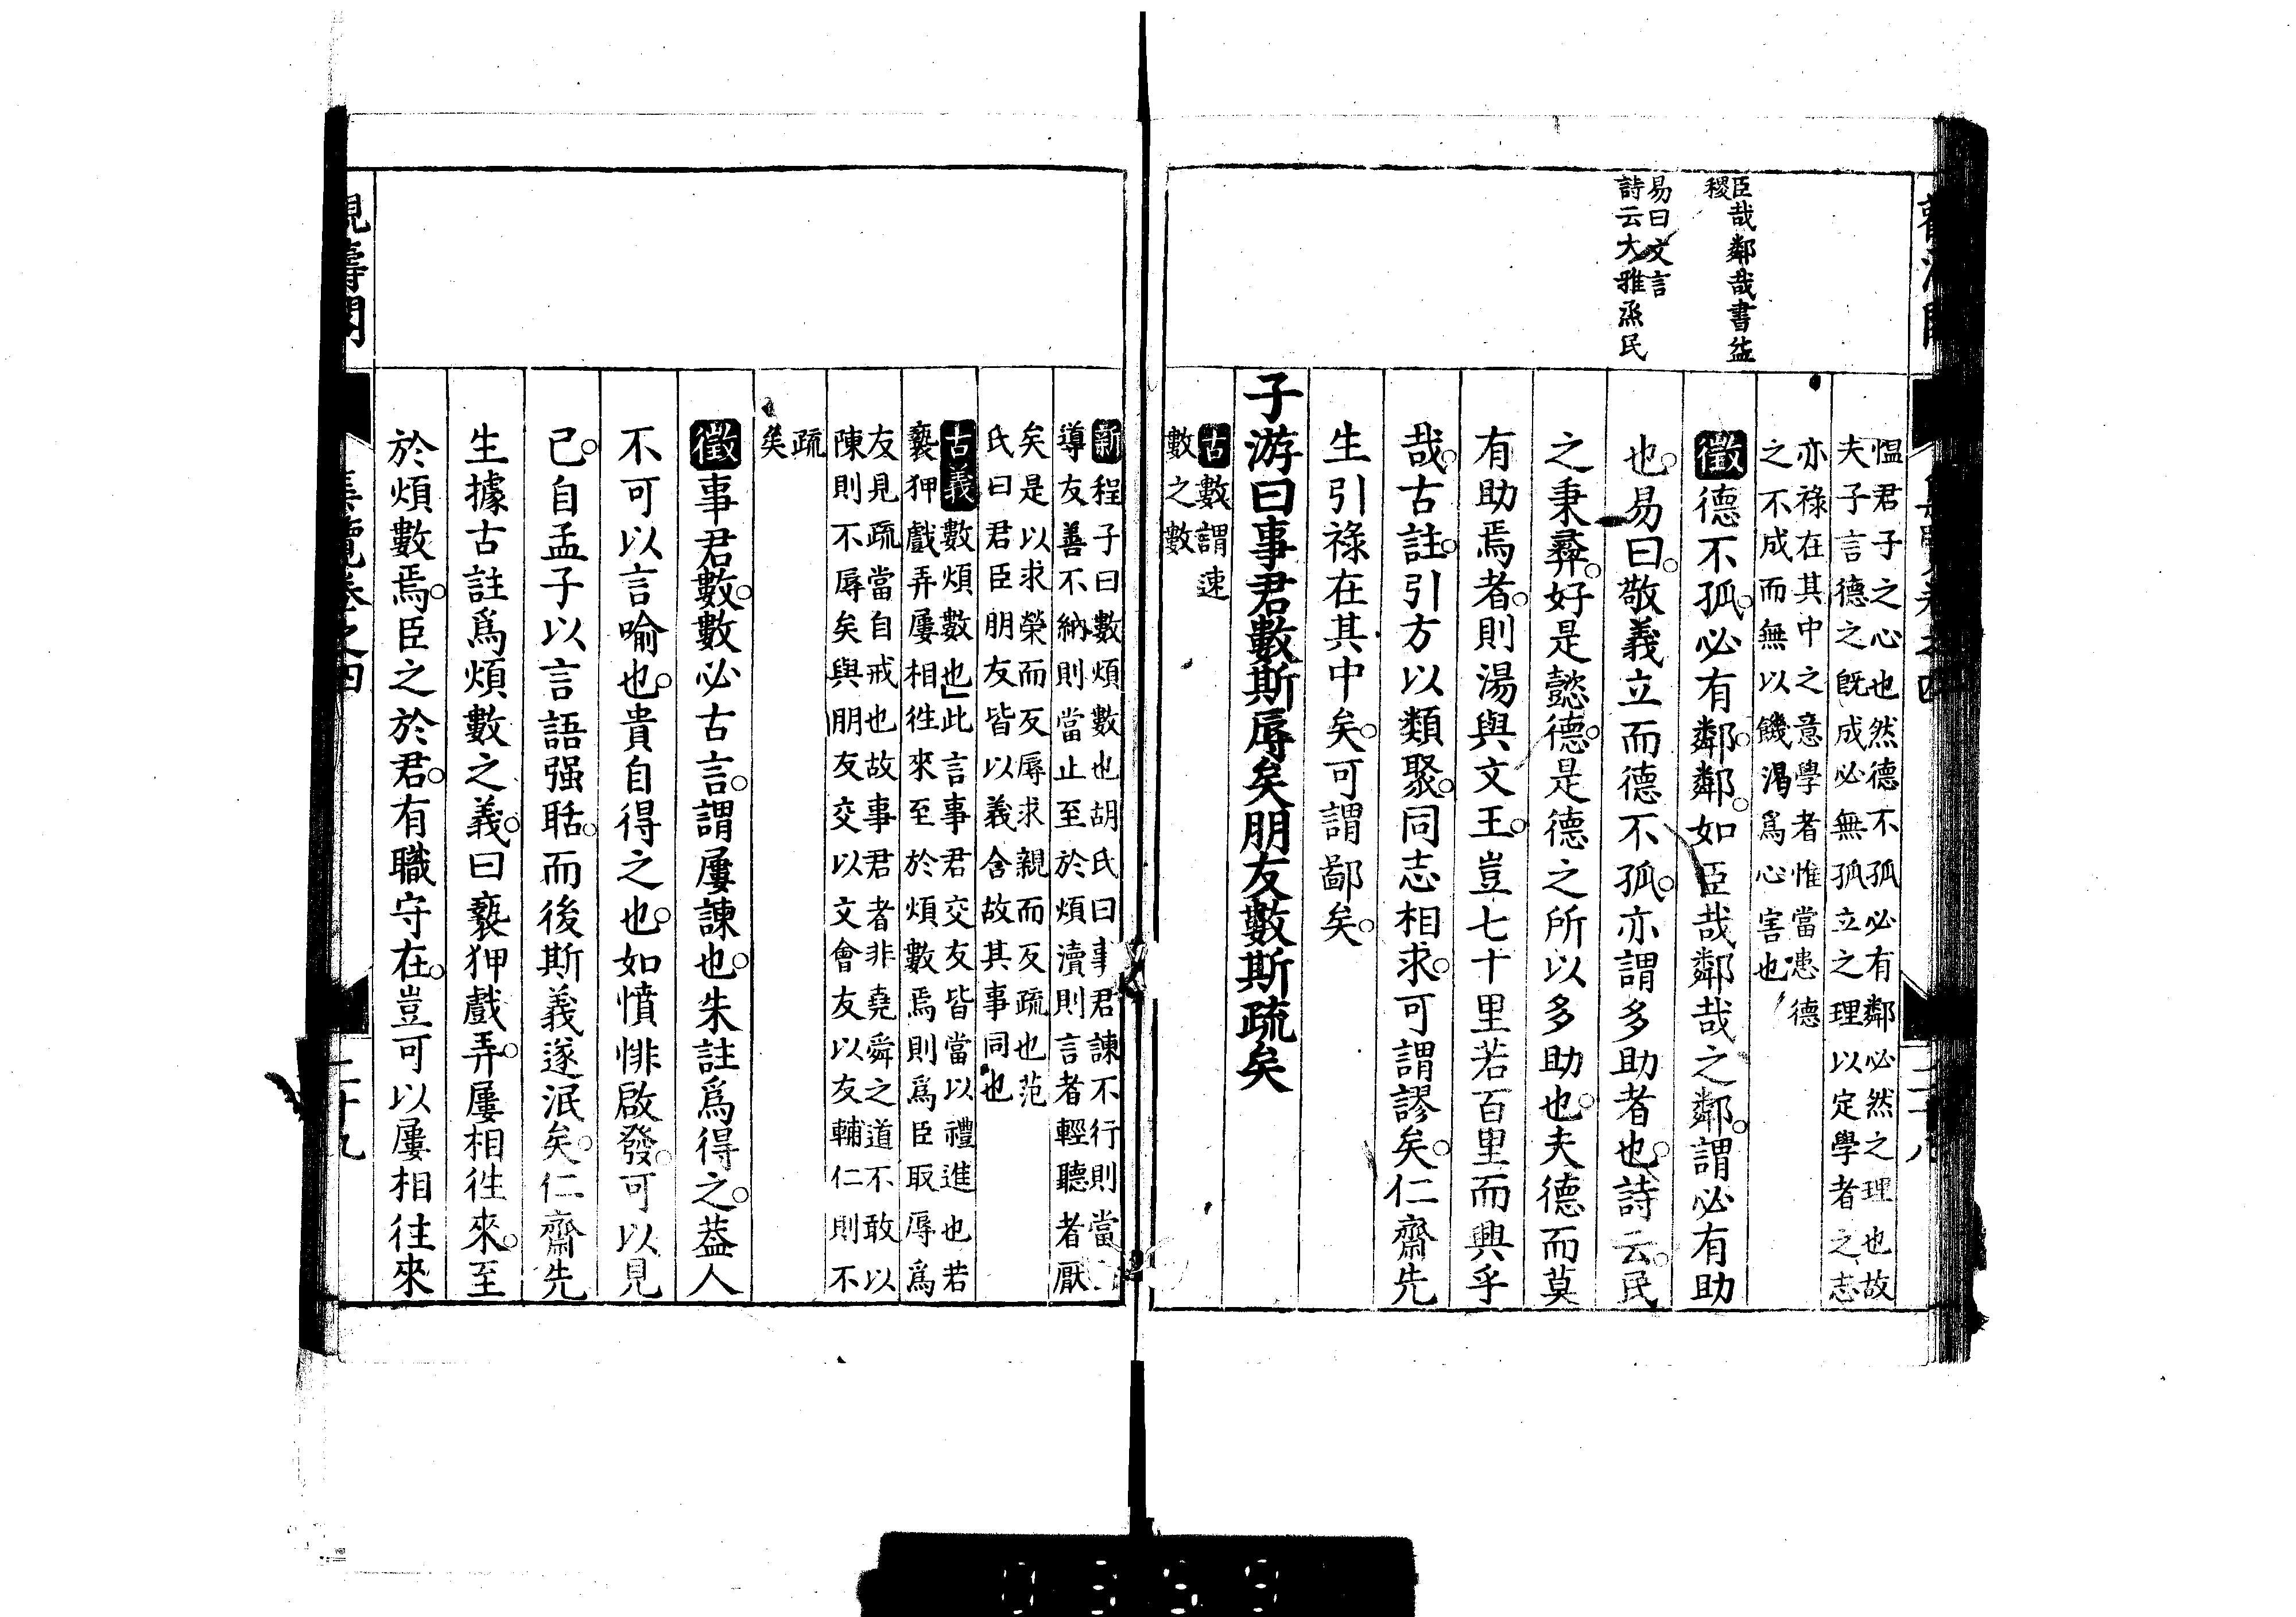 臣哉鄰哉書益
稷
易曰文言
詩云大雅烝民
慍君子之心也然德不孤必有鄰必然之理也故
夫子言德之既成必無孤立之理以定學者之志
亦祿在其中之意學者惟當患德
之不成而無以饑渇爲心害也
徵德不孤必有鄰鄰如臣哉鄰哉之鄰謂必有助
也易曰敬義立而德不孤亦謂多助者也詩云民
之秉彝好是懿德是德之所以多助也夫德而莫
有助焉者則湯與文王豈七十里若百里而興乎
哉古註引方以類聚同志相求可謂謬矣仁齋先
生引祿在其中矣可謂鄙矣
子游曰事君數斯辱矣朋友數斯疏矣
古數謂速
數之數
新程子曰數煩數也胡氏曰事君諫不行則當
導友善不納則當止至於煩瀆則言者輕聽者厭
矣是以求榮而反辱求親而反疏也范
氏曰君臣朋友皆以義合故其事同也
古義數煩數也此言事君交友皆當以禮進也若
褻狎戲弄屢相徃來至於煩數焉則爲臣取辱爲
友見疏當自戒也故事君者非堯舜之道不敢以
陳則不辱矣與朋友交以文會友以友輔仁則不
疏
矣
徵事君數數必古言謂屢諫也朱註爲得之葢人
不可以言喻也貴自得之也如憤悱啟發可以見
已自孟子以言語强聒而後斯義遂泯矣仁齋先
生據古註爲煩數之義曰褻狎戲弄屢相徃來至
於煩數焉臣之於君有職守在豈可以屢相往來
集覽卷之四
二十九